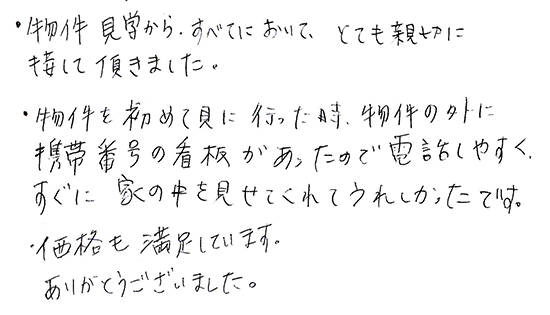 ・物件見学から、すべてにおいて、とても親切に
接して頂きました。
・物件を初めて見に行った時、物件の外に
携帯番号の看板があったので電話しやすく、
すぐに家の中を見せてくれてうれしかったです。
・価格も満足しています。
ありがとうございました。